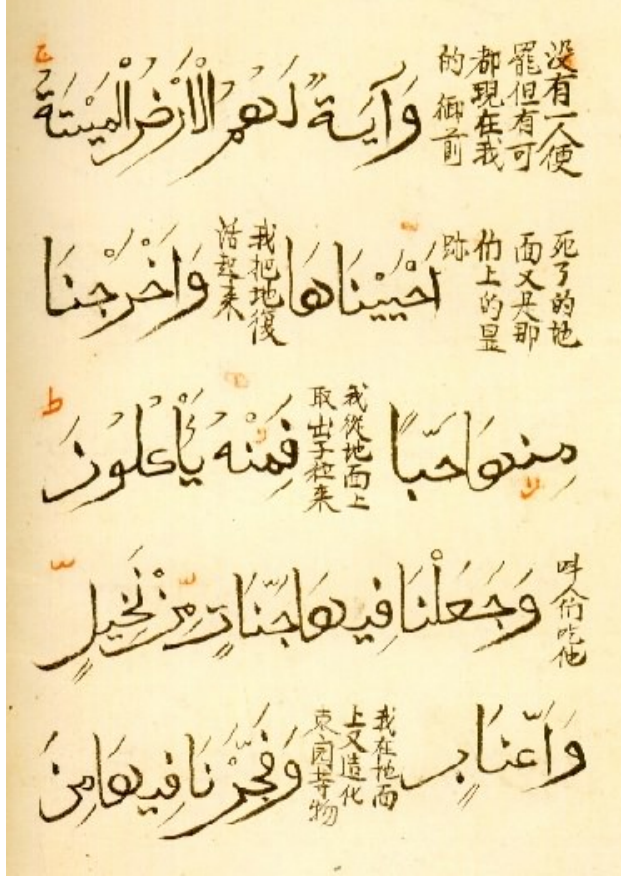 没有一人便
罷但有可
都現在我
的御前
وَآيَةٌ لَهُمُ الْأَرْضُ الْمَيْتَةُ
死了的地
面又是那
上的显
跡
اَحْيَيْنَاهَا
我把地復
活起来
وَاَخْرَجْنَا
مِنْهَا حَبًّا
我從地面上
取出子粒来
فَمِنْهُ يَأْكُلُونَ
吃他
وَجَعَلْنَا فِيهَا جَنَّاتٍ مِنْ نَخِيلٍ
وَاَعْنَابٍ
我在地面
上又造化
园等物
وَفَجَّرْنَا فِيهَا مِنَ